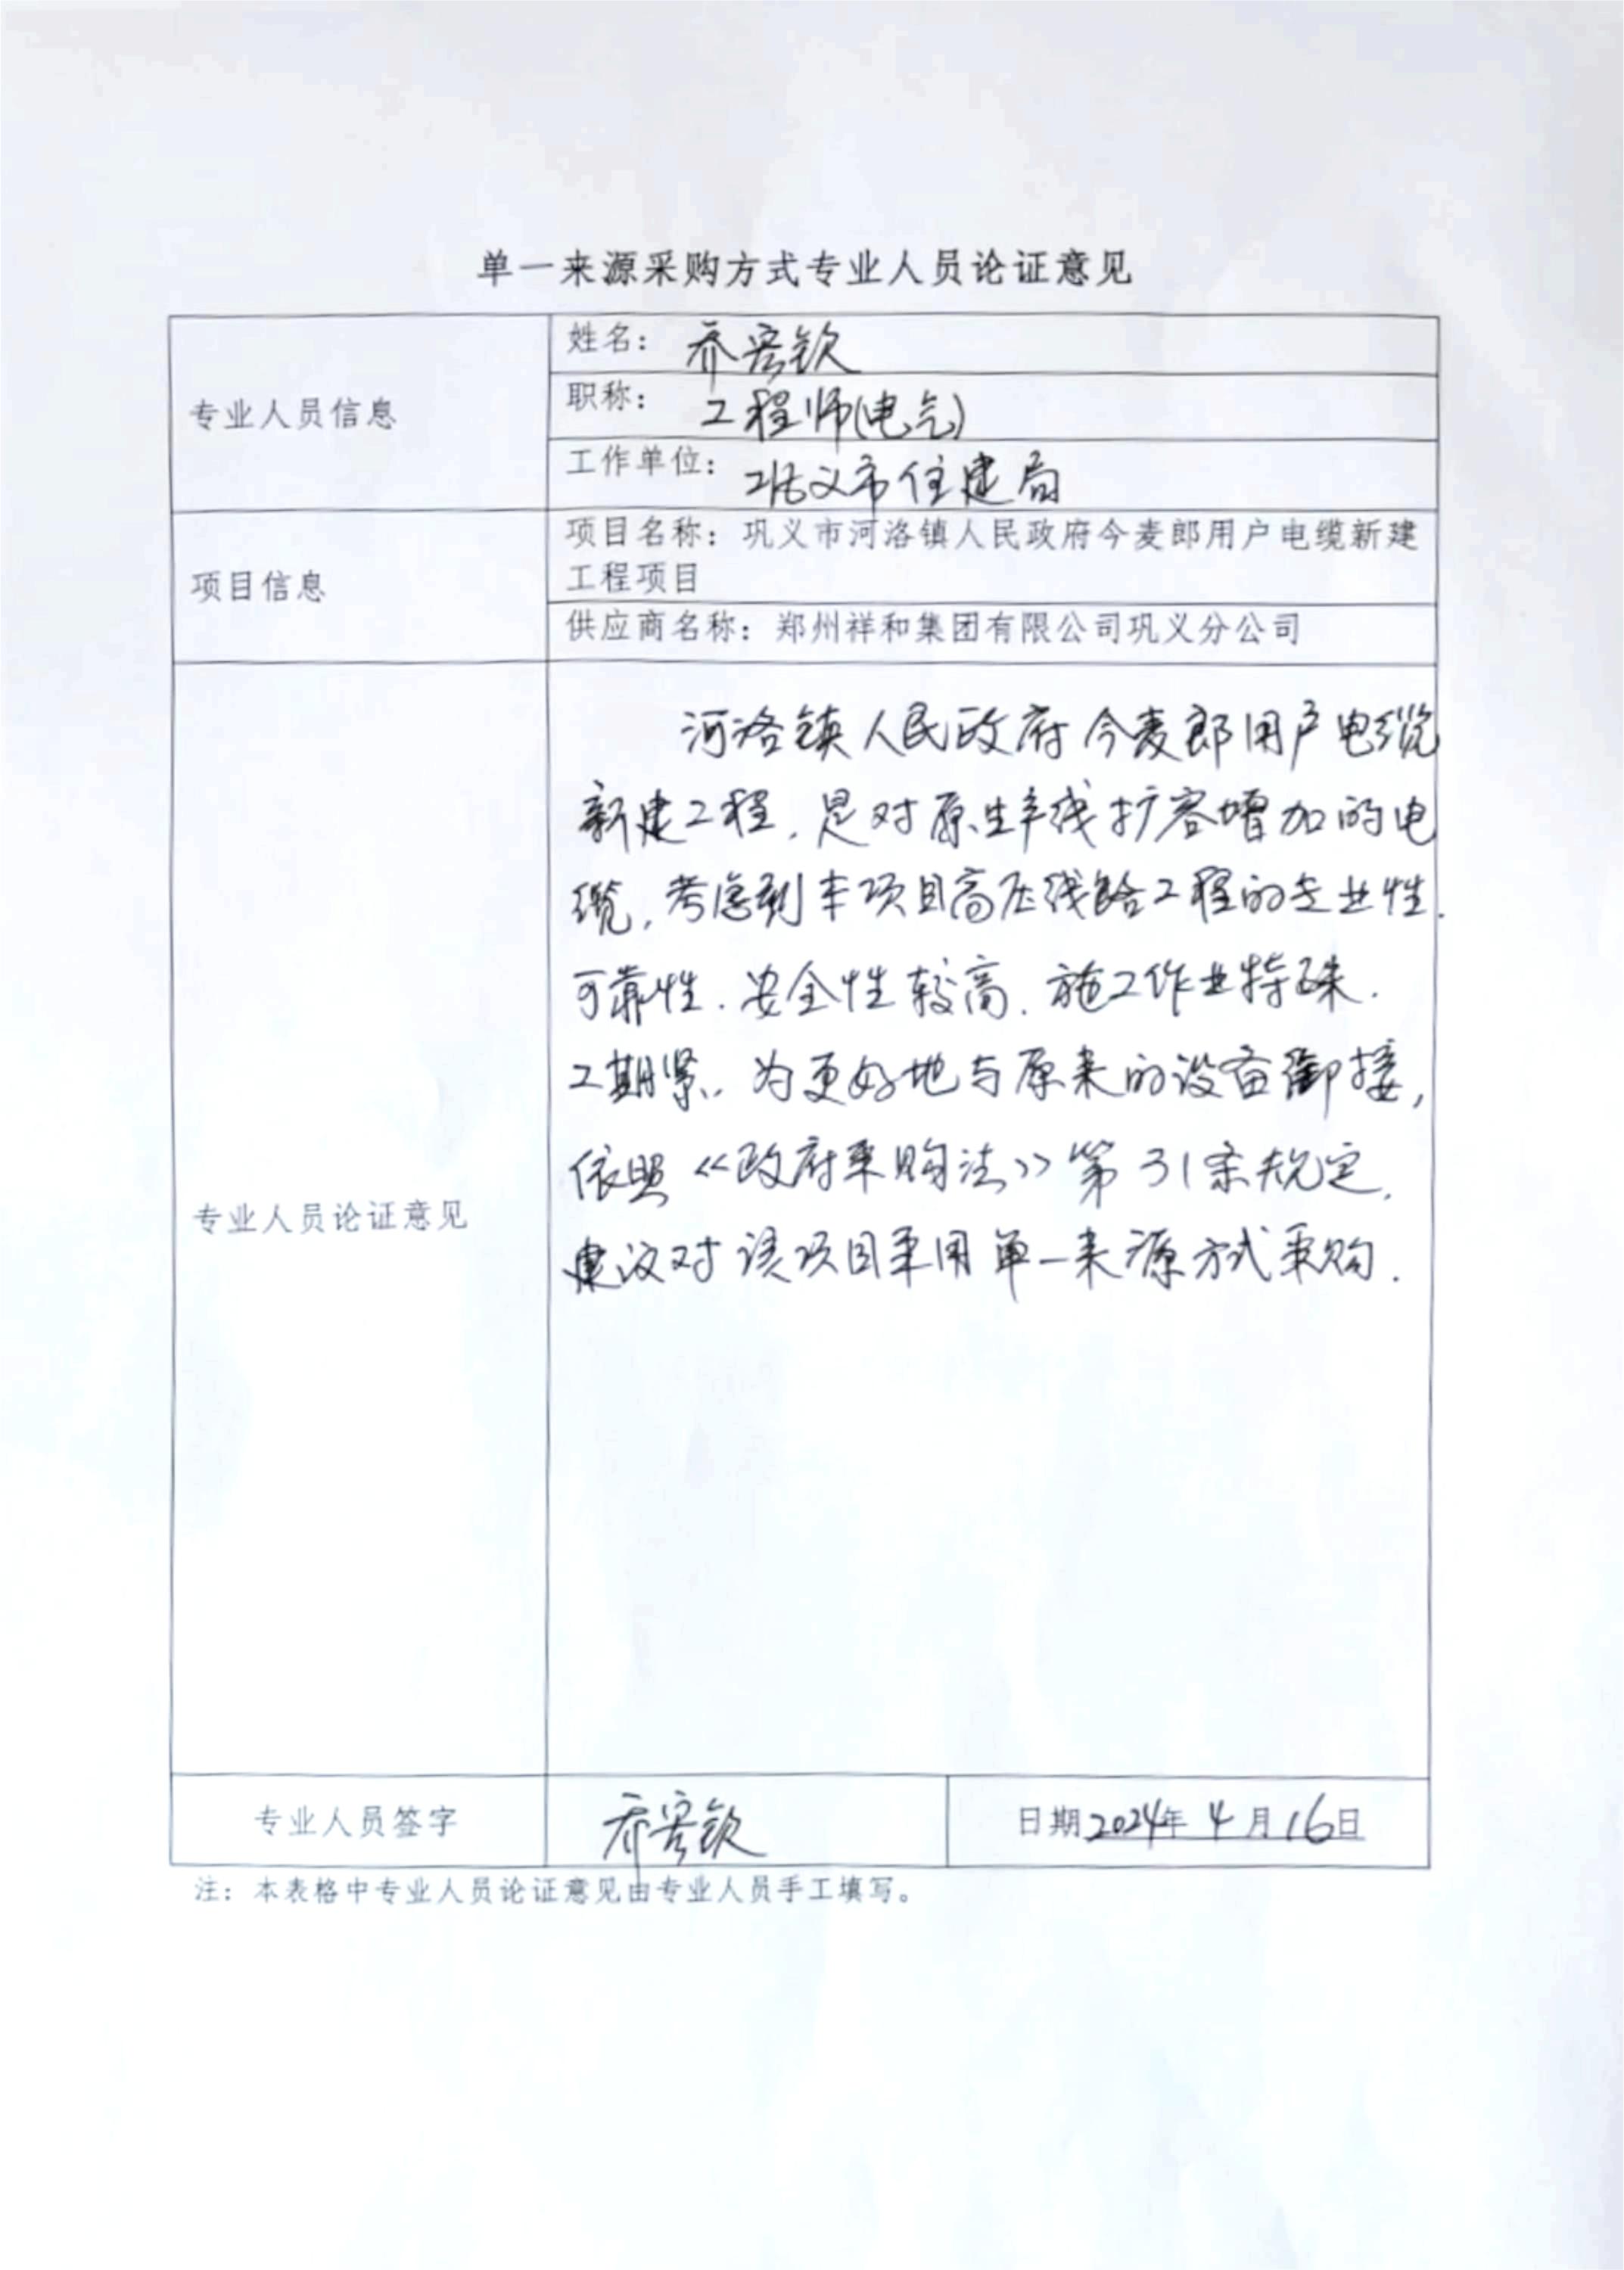 单一来源采购方式专业人员论证意见
专业人员信息
姓名：乔宏钦
职称：工程师(电气)
工作单位：巩义市住建局
项目信息
项目名称：巩义市河洛镇人民政府今麦郎用户电缆新建
工程项目
供应商名称：郑州祥和集团有限公司巩义分公司
专业人员论证意见
河洛镇人民政府今麦郎用户电缆
新建工程，是对原生产线扩容增加的电
缆，考虑到本项目高压线路工程的专业性、
可靠性、安全性较高、施工作业特殊、
工期紧，为更好地与原来的设备衔接，
依照《政府采购法》第31条规定，
建议对该项目采用单一来源方式采购.
专业人员签字
乔宏钦
日期2024年4月16日
注：本表格中专业人员论证意见由专业人员手工填写。